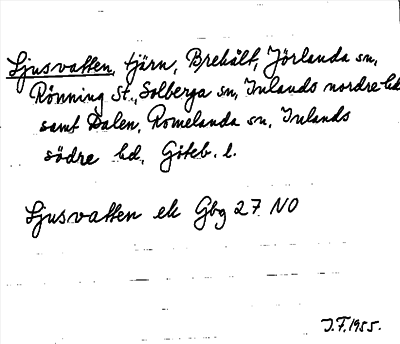 Ljusvatten, tjärn, Brehält, Jörlanda sn,
Rönning St., Solberga sn, Inlands nordre hd
samt Dalen, Romelanda sn, Inlands
södre hd, Göteb. l.
Ljusvatten ek Gbg 27 NO
J.F. 1955.